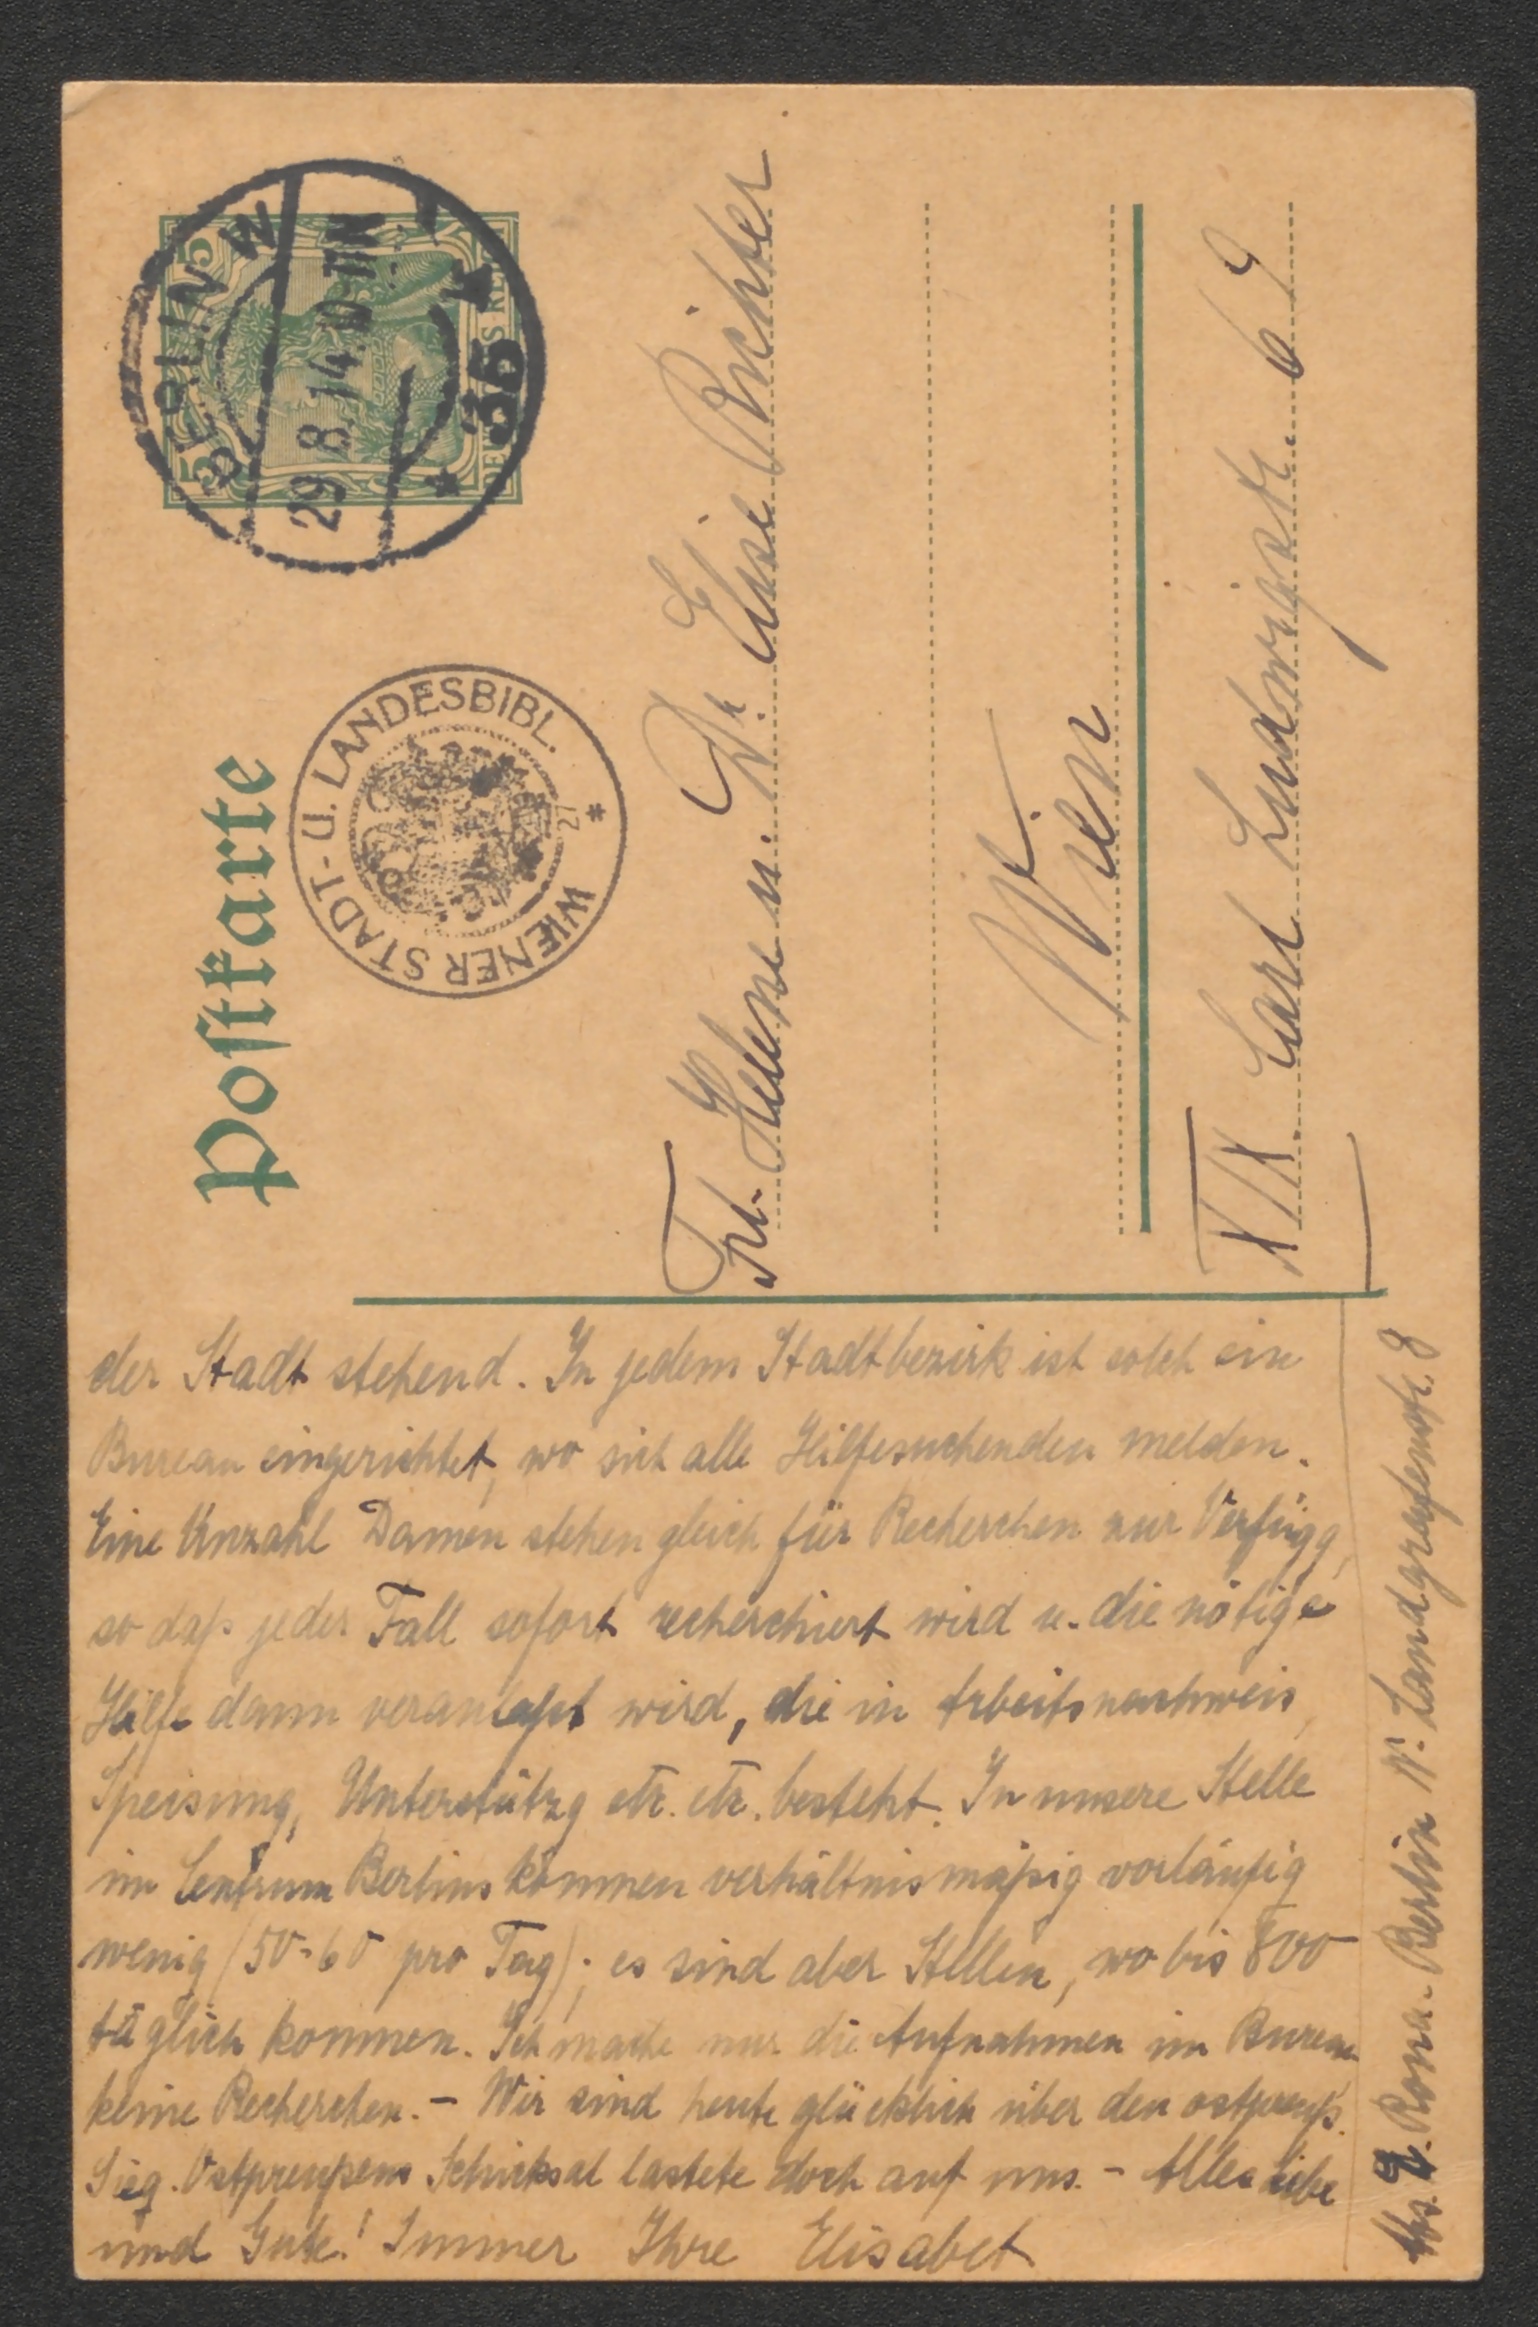 Postkarte
BERLIN W
29.8.14.
* 35 *
5
5
WIENER STADT- U. LANDESBIBL.
*
27
Frl. Helene u. Dr. Elise Richter
Wien
XIX Carl Ludwigstr. 69
der Stadt stehend. In jedem Stadtbezirk ist solch ein
Bureau eingerichtet, wo sich alle Hilfesuchenden melden.
Eine Unzahl Damen stehen gleich für Recherchen zur Verfügg,
so daß jeder Fall sofort recherchiert wird u. die nötige
Hilfe dann veranlaßt wird, die in Arbeitsnachweis,
Speisung, Unterstützg etc. etc. besteht. In unsere Stelle
im Centrum Berlins kommen verhältnismäßig vorläufig
wenig (50-60 pro Tag); es sind aber Stellen, wo bis 800
täglich kommen. Ich mache nur die Aufnahmen im Bureau,
keine Recherchen. – Wir sind heute glücklich über den ostpreuß.
Sieg. Ostpreußens Schicksal lastete doch auf uns. – Alles Liebe
und Gute! Immer Ihre Elisabet
Abs. E. Rona. Berlin W. Landgrafenstr. 8